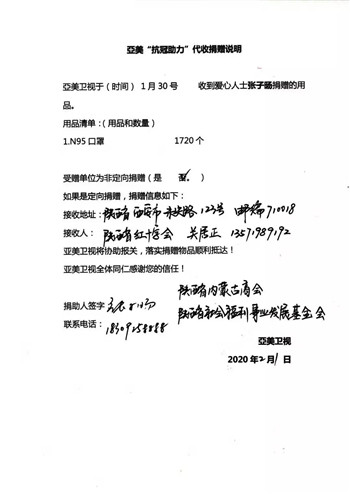 亞美“抗冠助力”代收捐赠说明
亚美卫视于（时间）1月30号 收到爱心人士张子旸捐赠的用
品。
用品清单：（用品和数量）
1.N95口罩 1720个
受赠单位为非定向捐赠（是 否）
如果是定向捐赠，捐赠信息如下：
接收地址：陕西省西安市未央路123号 邮编710018
接收人：陕西省红十字会 关居正 13571989192
亚美卫视将协助报关，落实捐赠物品顺利抵达！
亚美卫视全体同仁感谢您的信任！
陕西省内蒙古商会
捐助人签字
陕西省社会福利事业发展基金会
联系电话：
亞美卫视
2020年2月1日